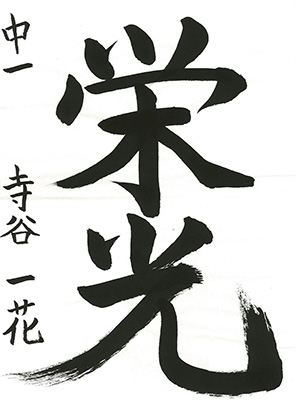 栄光
中一 寺谷一花